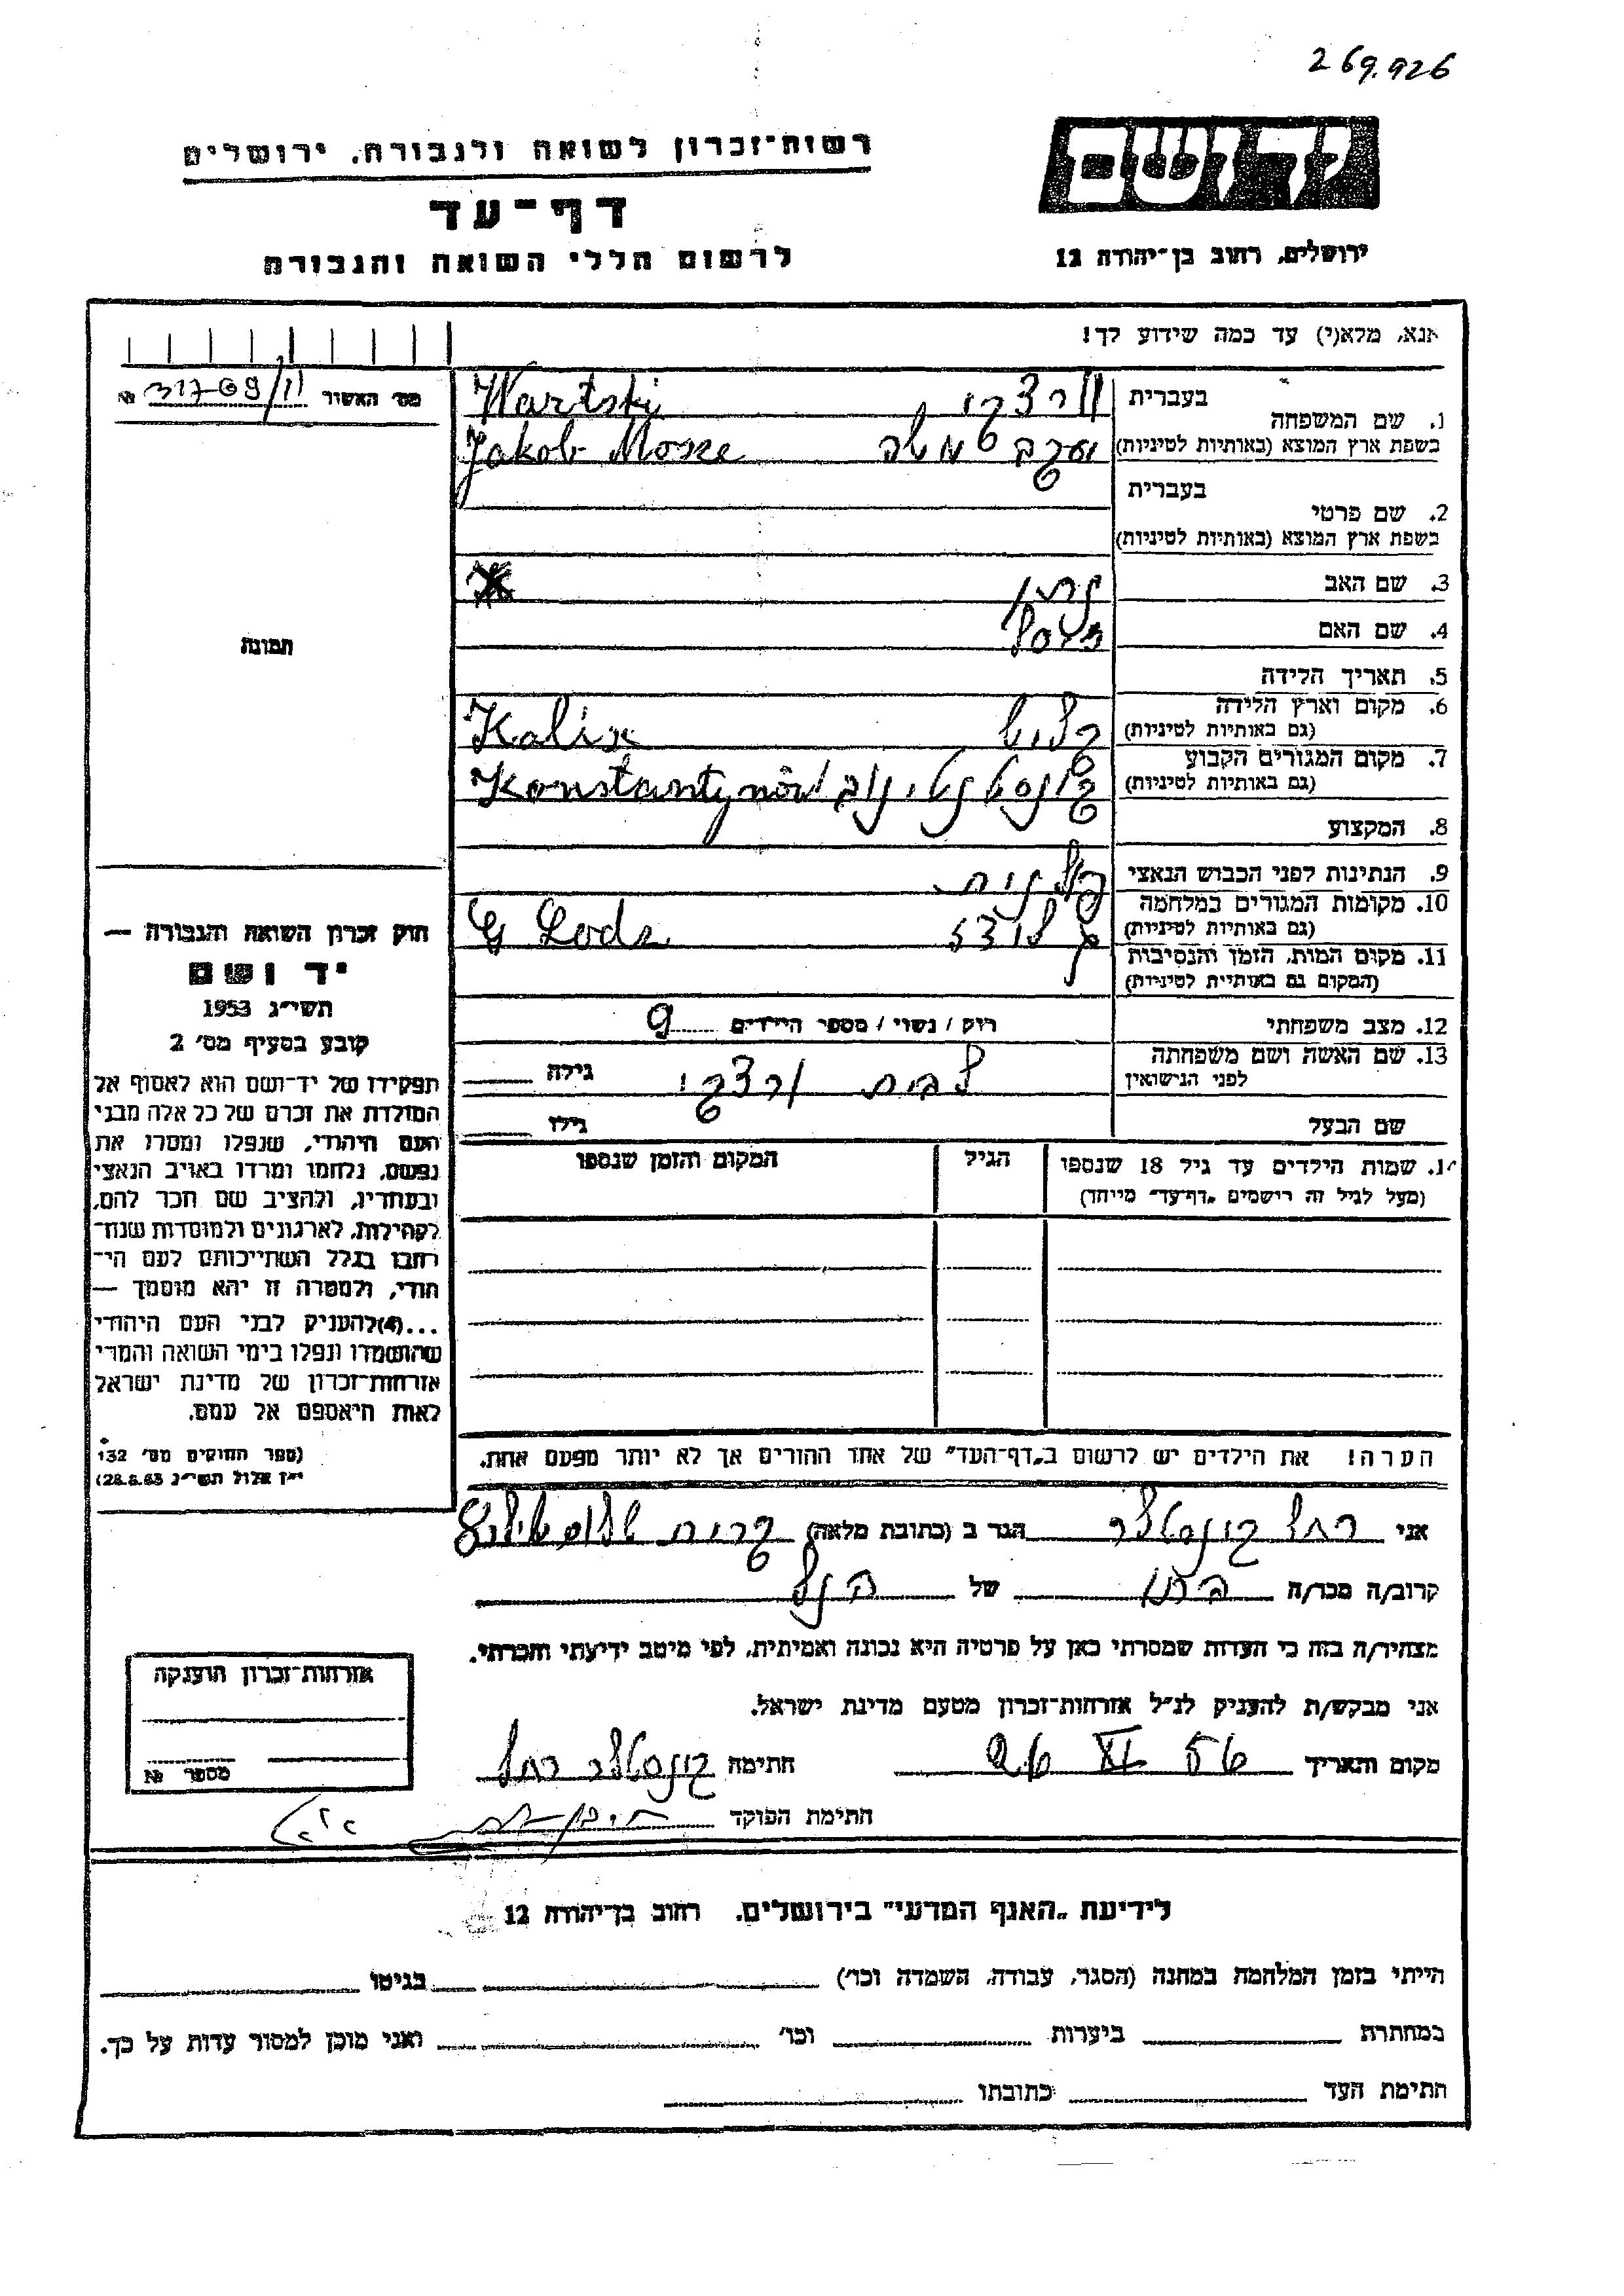 269.926
יד ושם
ירושלים, רחוב בן־יהודה 12
רשות־זכרון לשואה ולגבורה, ירושלים
דף־עד
לרשום חללי השואה והגבורה
אנא, מלא(י) עד כמה שידוע לך!
מס׳ האשור 31769/11 №
תמונה
1. שם המשפחה
בעברית ורצקי Wartski
בשפת ארץ המוצא (באותיות לטיניות) יעקב משה Jakob Mosze
2. שם פרטי
בעברית
בשפת ארץ המוצא (באותיות לטיניות)
3. שם האב נתן
4. שם האם
5. תאריך הלידה
6. מקום וארץ הלידה קליש Kalisz
(גם באותיות לטיניות)
7. מקום המגורים הקבוע קונסטנטינוב Konstantynów
(גם באותיות לטיניות)
8. המקצוע
9. הנתינות לפני הכבוש הנאצי פולנית
10. מקומות המגורים במלחמה
(גם באותיות לטיניות) ג לודז G Lodz
11. מקום המות, הזמן והנסיבות
(המקום גם באותיות לטיניות)
12. מצב משפחתי רווק / נשוי / מספר הילדים 9
13. שם האשה ושם משפחתה
לפני הנישואין לבית ורצקי גילה
שם הבעל גילו
14. שמות הילדים עד גיל 18 שנספו הגיל המקום והזמן שנספו
(מעל לגיל זה רישמים „דף־עד״ מייחד)
הערה! את הילדים יש לרשום ב„דף־העד״ של אחד ההורים אך לא יותר מפעם אחת.
חוק זכרון השואה והגבורה —
יד ושם
תשי״ג 1953
קובע בסעיף מס׳ 2
תפקידו של יד־ושם הוא לאסוף אל
המולדת את זכרם של כל אלה מבני
העם היהודי, שנפלו ומסרו את
נפשם, נלחמו ומרדו באויב הנאצי
ובעוזריו, ולהציב שם וזכר להם,
לקהילות, לארגונים ולמוסדות שנח־
רבו בגלל השתייכותם לעם הי־
הודי, ולמטרה זו יהא מוסמך —
...(4) להעניק לבני העם היהודי
שהושמדו ונפלו בימי השואה והמרי
אזרחות־זכרון של מדינת ישראל
לאות היאספם אל עמם.
(ספר החוקים מס׳ 132
י״ז אלול תשי״ג 28.8.53)
אני רחל קונסטלר הגר ב (כתובת מלאה) קרית שלום
קרוב/ה מכר/ה בתו של הנ״ל
מצהיר/ה בזה כי העדות שמסרתי כאן על פרטיה היא נכונה ואמיתית, לפי מיטב ידיעתי והכרתי.
אני מבקש/ת להעניק לנ״ל אזרחות־זכרון מטעם מדינת ישראל.
מקום ותאריך 26 XI 56 חתימה קונסטלר רחל
חתימת הפוקד
אזרחות־זכרון הוענקה
מספר №
לידיעת „האגף המדעי״ בירושלים. רחוב בן־יהודה 12
הייתי בזמן המלחמה במחנה (הסגר, עבודה, השמדה וכו׳) בגיטו
במחתרת ביערות וכו׳ ואני מוכן למסור עדות על כך.
חתימת העד כתובתו